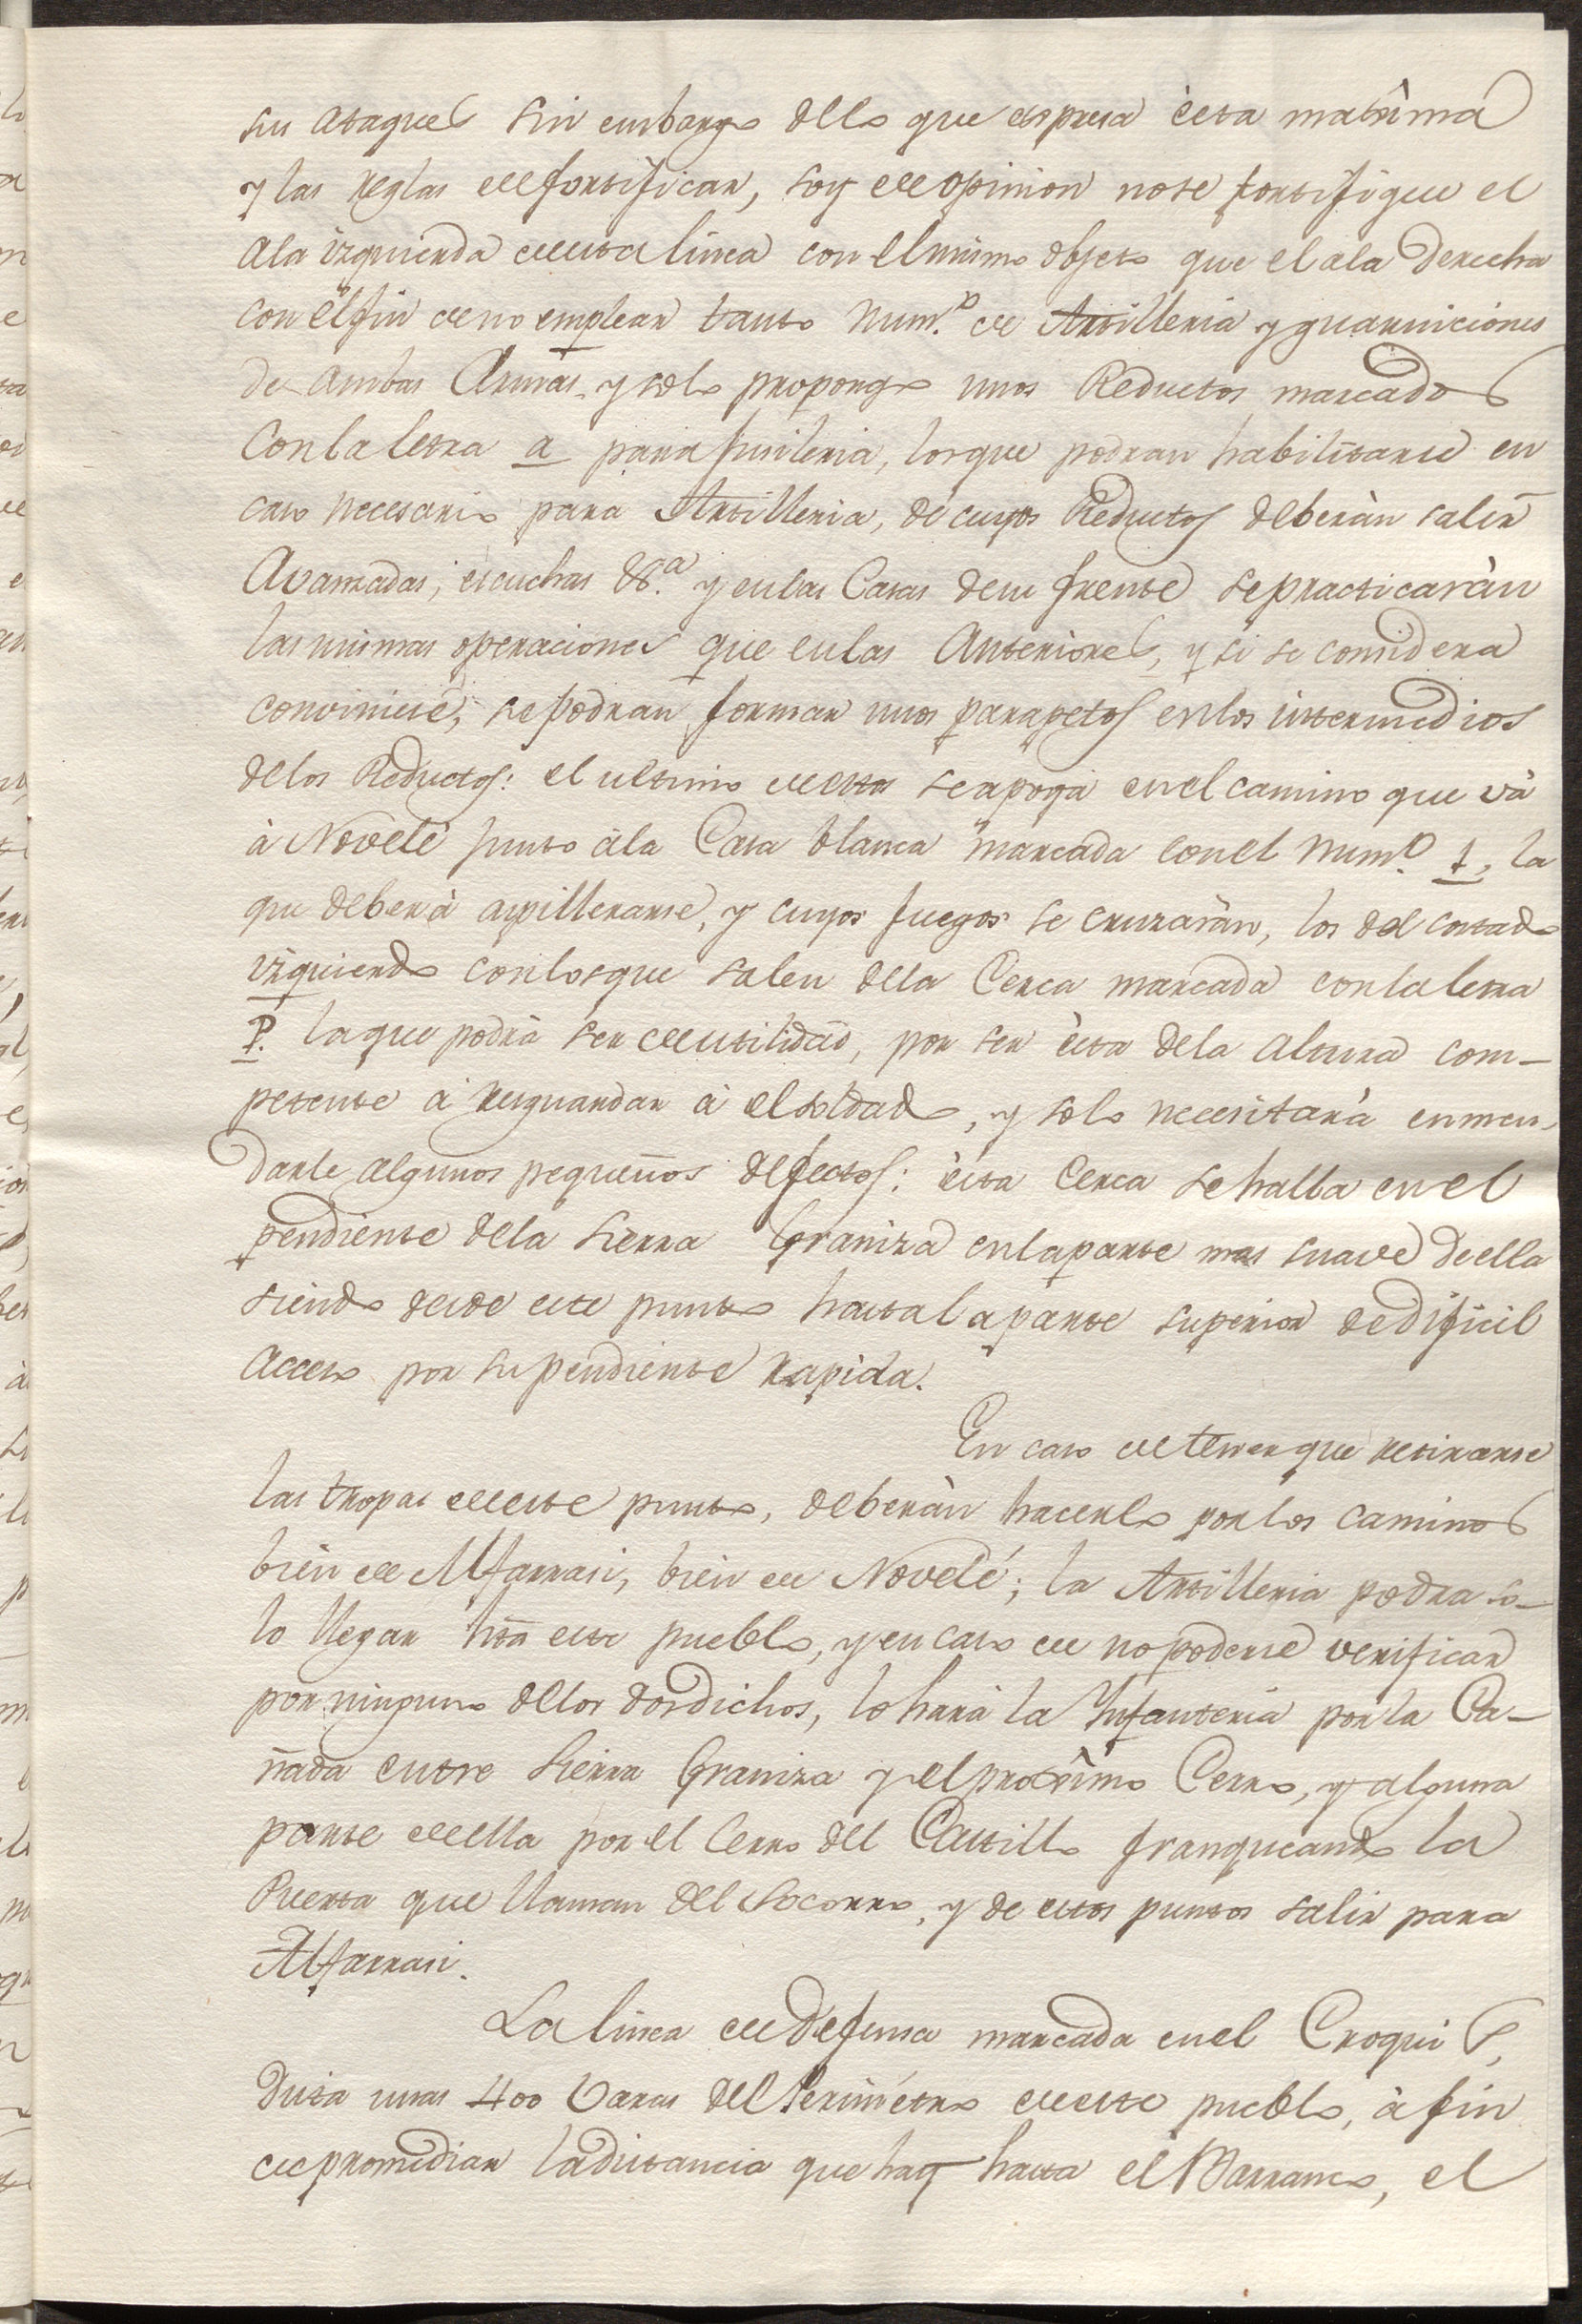 su ataque sin embargo dello que expresa èsta maxîma
y las reglas de fortificar, soy de opinion no se fortifique el
ala izquierda de esta linea con el mismo objeto que el ala derecha
con el fin de no emplear tanto num.º de Artilleria y guarniciones
de ambas Armas, y solo propongo unos Reductos marcados
con la letra a para fusileria, los que podran habilitarse en
caso necesario para Artilleria, de cuyos Reductos deberàn salir
Avanzadas, escuchas &.ª y en las Casas de su frente se practicaràn
las mismas operaciones que en las Anteriores, y si se considera
conviniese, se podran formar unos parapetos en los intermedios
de los Reductos: el ultimo de estos se apoya en el camino que và
à Novelé junto à la Casa blanca marcada con el num.º 1, la
que deberà aspillerarse, y cuyos fuegos se cruzaràn, los del costado
izquierdo con los que salen de la Cerca marcada con la letra
P. la que podrà ser de utilidad, por ser èsta de la altura com-
petente à resguardar à el soldado, y solo necesitarà enmen-
darle algunos pequeños defectos: èsta Cerca se halla en el
pendiente de la Sierra Graniza en la parte mas suave de ella
siendo desde este punto hasta la parte superior de dificil
acceso por su pendiente rapida.
En caso de tener que retirarse
las tropas de este punto, deberàn hacerlo por los caminos
bien de Alfarrasi, bien de Novelé; la Artilleria podra so-
lo llegar htã este pueblo, y en caso de no poderse verificar
por ninguno de los dos dichos, lo harà la Infanteria por la Ca-
ñada entre Sierra Graniza y el proxîmo Cerro, y alguna
parte de ella por el Cerro del Castillo franqueando la
Puerta que llaman del Socorro, y de estos puntos salir para
Alfarrasi.
La linea de defensa marcada en el Croquis,
dista unas 400 Varas del Perimétro de este pueblo, à fin
de promediar la distancia que hay hasta el Barranco, el